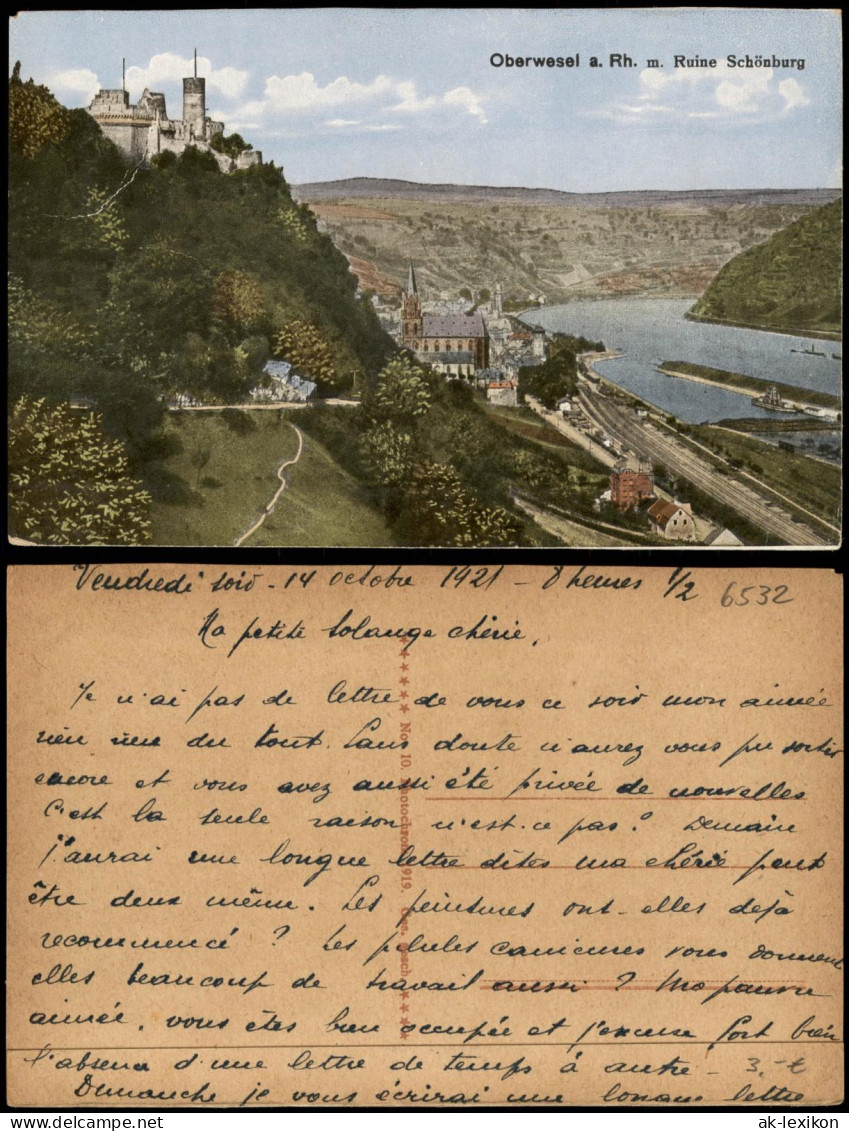 Oberwesel a. Rh. m. Ruine Schönburg
Vendredi soir - 14 octobre 1921 - 8 heures 1/2
6532
Ma petite Solange chérie,
Je n'ai pas de lettre de vous ce soir mon aimée
rien du tout. Sans doute n'aurez vous pu sortir
encore et vous avez aussi été privée de nouvelles
C'est la seule raison n'est-ce pas? Demain
j'aurai une longue lettre dites ma chérie peut
être deux même. Les peintures ont-elles déjà
recommencé? Les pilules vous donnent
elles beaucoup de travail aussi? Ma pauvre
aimée, vous êtes bien occupée et j'excuse fort bien
l'absence d'une lettre de temps à autre -
3,- €
Dimanche je vous écrirai une longue lettre
No. 10. Photochrom 1919. Ges. gesch.
ak-lexikon
DELCAMPE.NET